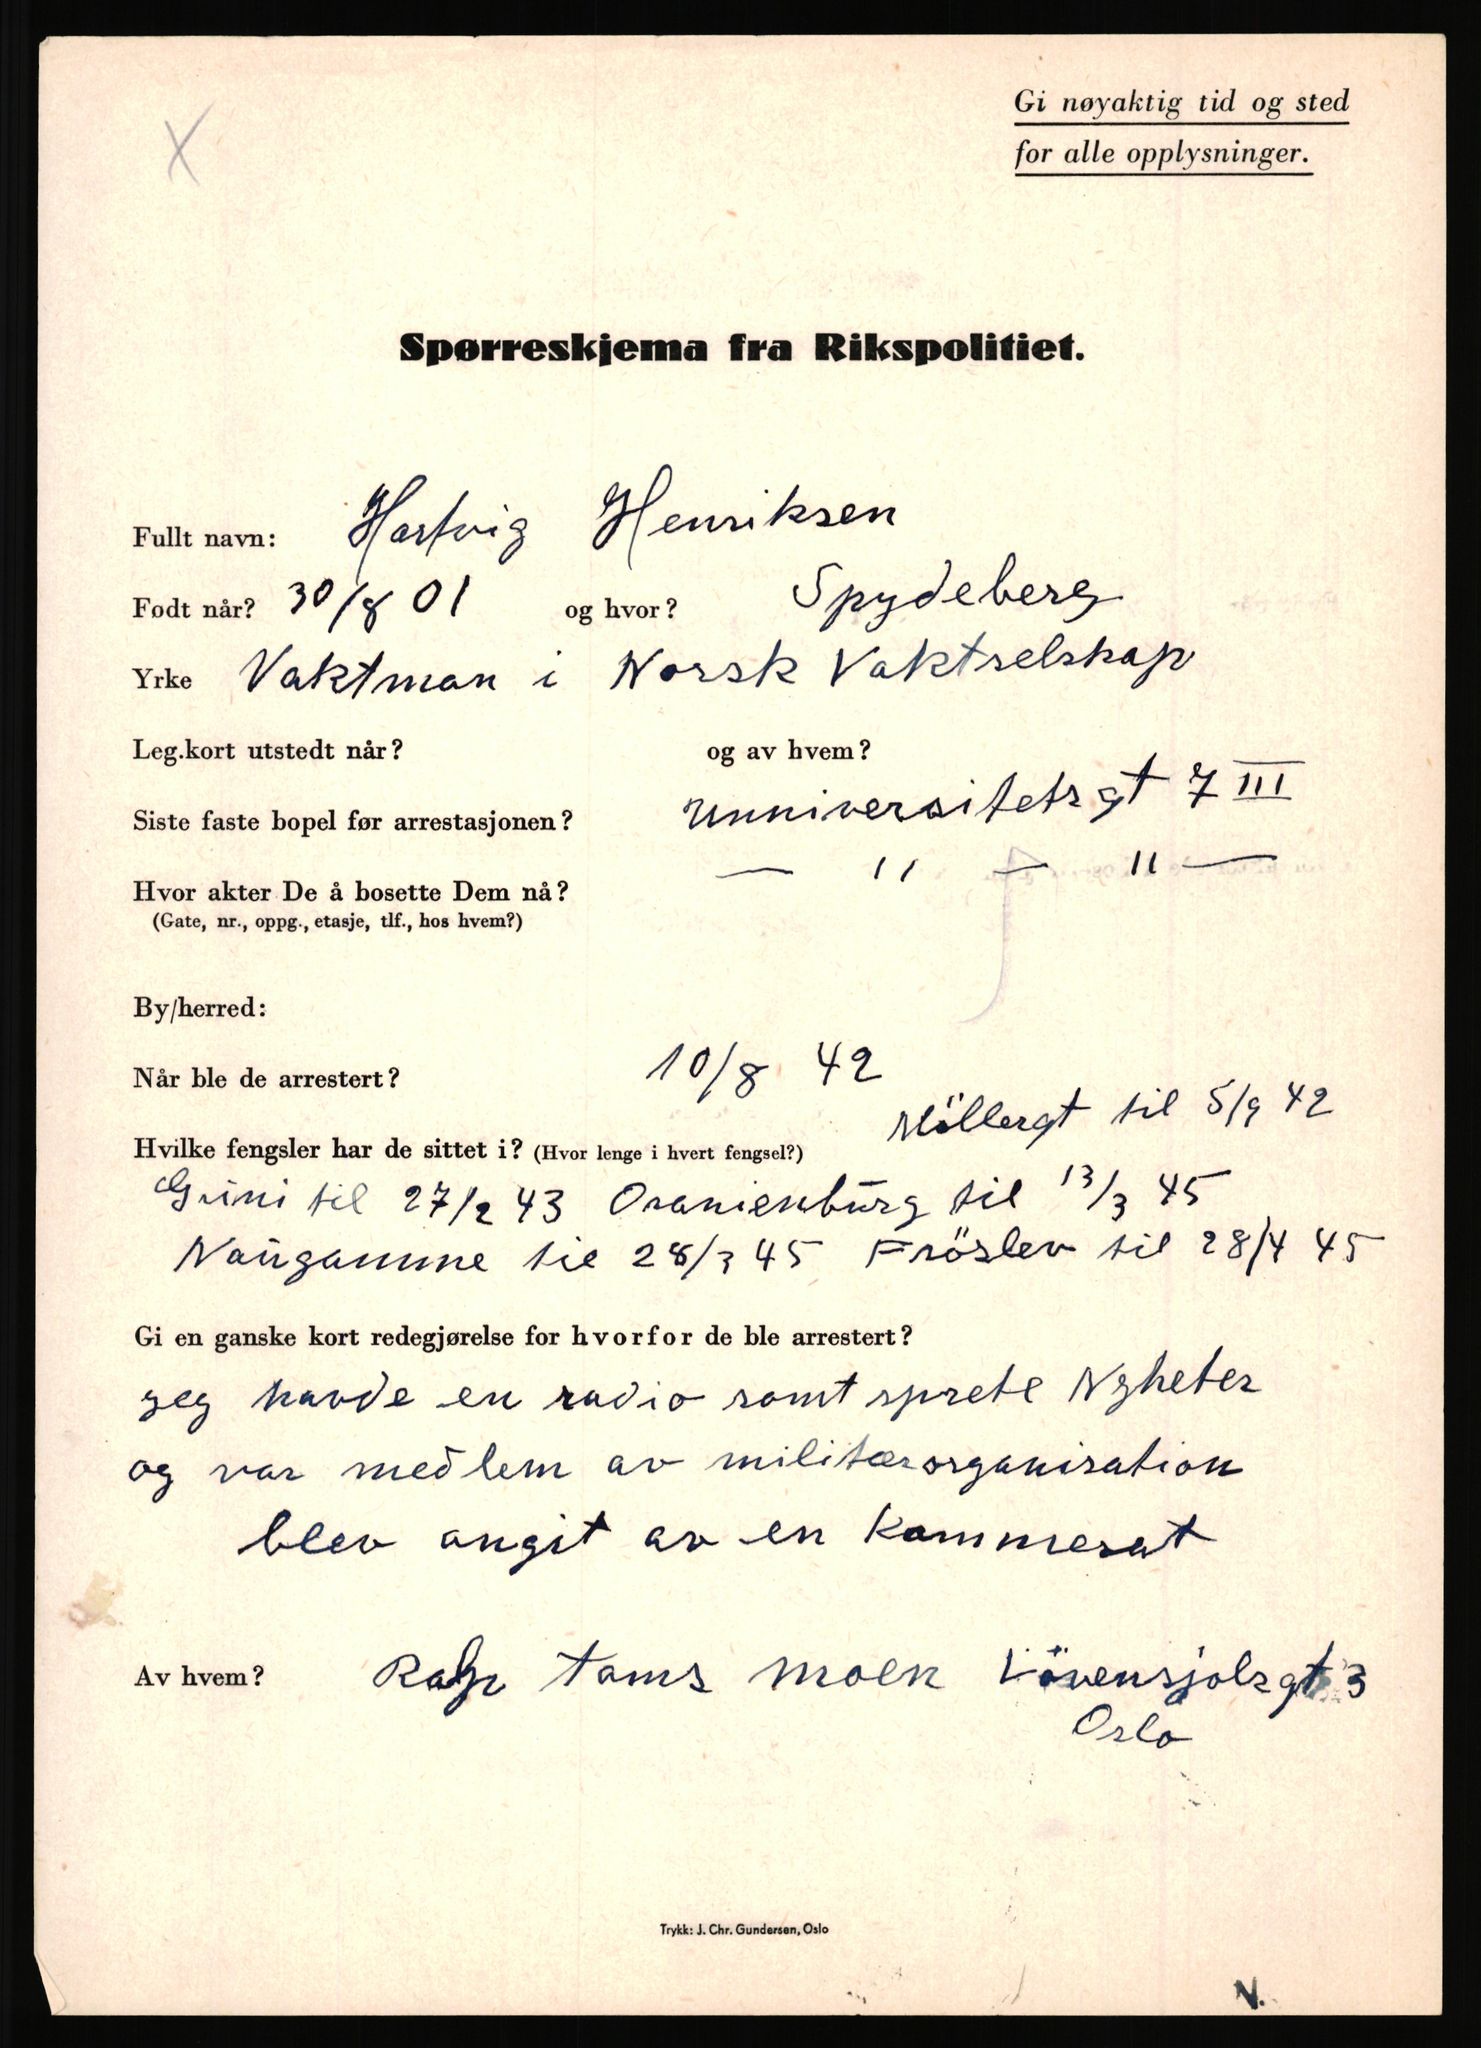 Gi nøyaktig tid og sted
for alle opplysninger.
Spørreskjema fra Rikspolitiet.
Fullt navn: Hartvig Henriksen
Født når? 30/8 01 og hvor? Spydeberg
Yrke Vaktman i Norsk Vaktselskap
Leg.kort utstedt når? og av hvem?
Siste faste bopel før arrestasjonen? Unniversitetsgt 7 III
Hvor akter De å bosette Dem nå? — " — " —
(Gate, nr., oppg., etasje, tlf., hos hvem?)
By/herred:
Når ble de arrestert? 10/8 42
Hvilke fengsler har de sittet i? (Hvor lenge i hvert fengsel?) Möllergt til 5/9 42
Grini til 27/2 43 Oranienburg til 13/3 45
Naugamme til 28/3 45 Fröslev til 28/4 45
Gi en ganske kort redegjørelse for hvorfor de ble arrestert?
jeg havde en radio samt sprete Nyheter
og var medlem av militærorganisation
blev angit av en Kammerat
Av hvem? Tams Moen Lövensjolsgt 3
Oslo
Trykk: J. Chr. Gundersen, Oslo
N.